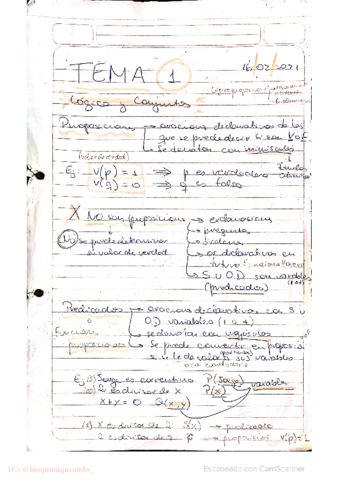 16/02/2021
TEMA 1
Lógica y Conjuntos
Proposiciones → oraciones declarativas de las
que se puede decir si son V o F
→ Se denotan con minúsculas
Ej: V(p) = 1 ⟹ p es verdadera
V(q) = 0 ⟹ q es falsa
X No son proposiciones → exclamaciones
→ pregunta
No se puede determinar
su valor de verdad
→ ordenes
→ or declarativas en
futuro
→ S u O.D. son variables
(predicados)
Predicados → oraciones declarativas con S u
O.D variables (1 o +)
o
Funciones
proposicionales
→ se denotan con mayúsculas
→ Se puede convertir en proposición
si se le da valor a sus variables
Ej (1) Jorge es correntino P(Jorge) variable
(2) 2 es divisor de x P(x)
x+y = 0 S(x,y)
(2) x es divisor de 2 S(x) → predicado
2 es divisor de 6 → proposición V(p)=1
Escaneado con CamScanner